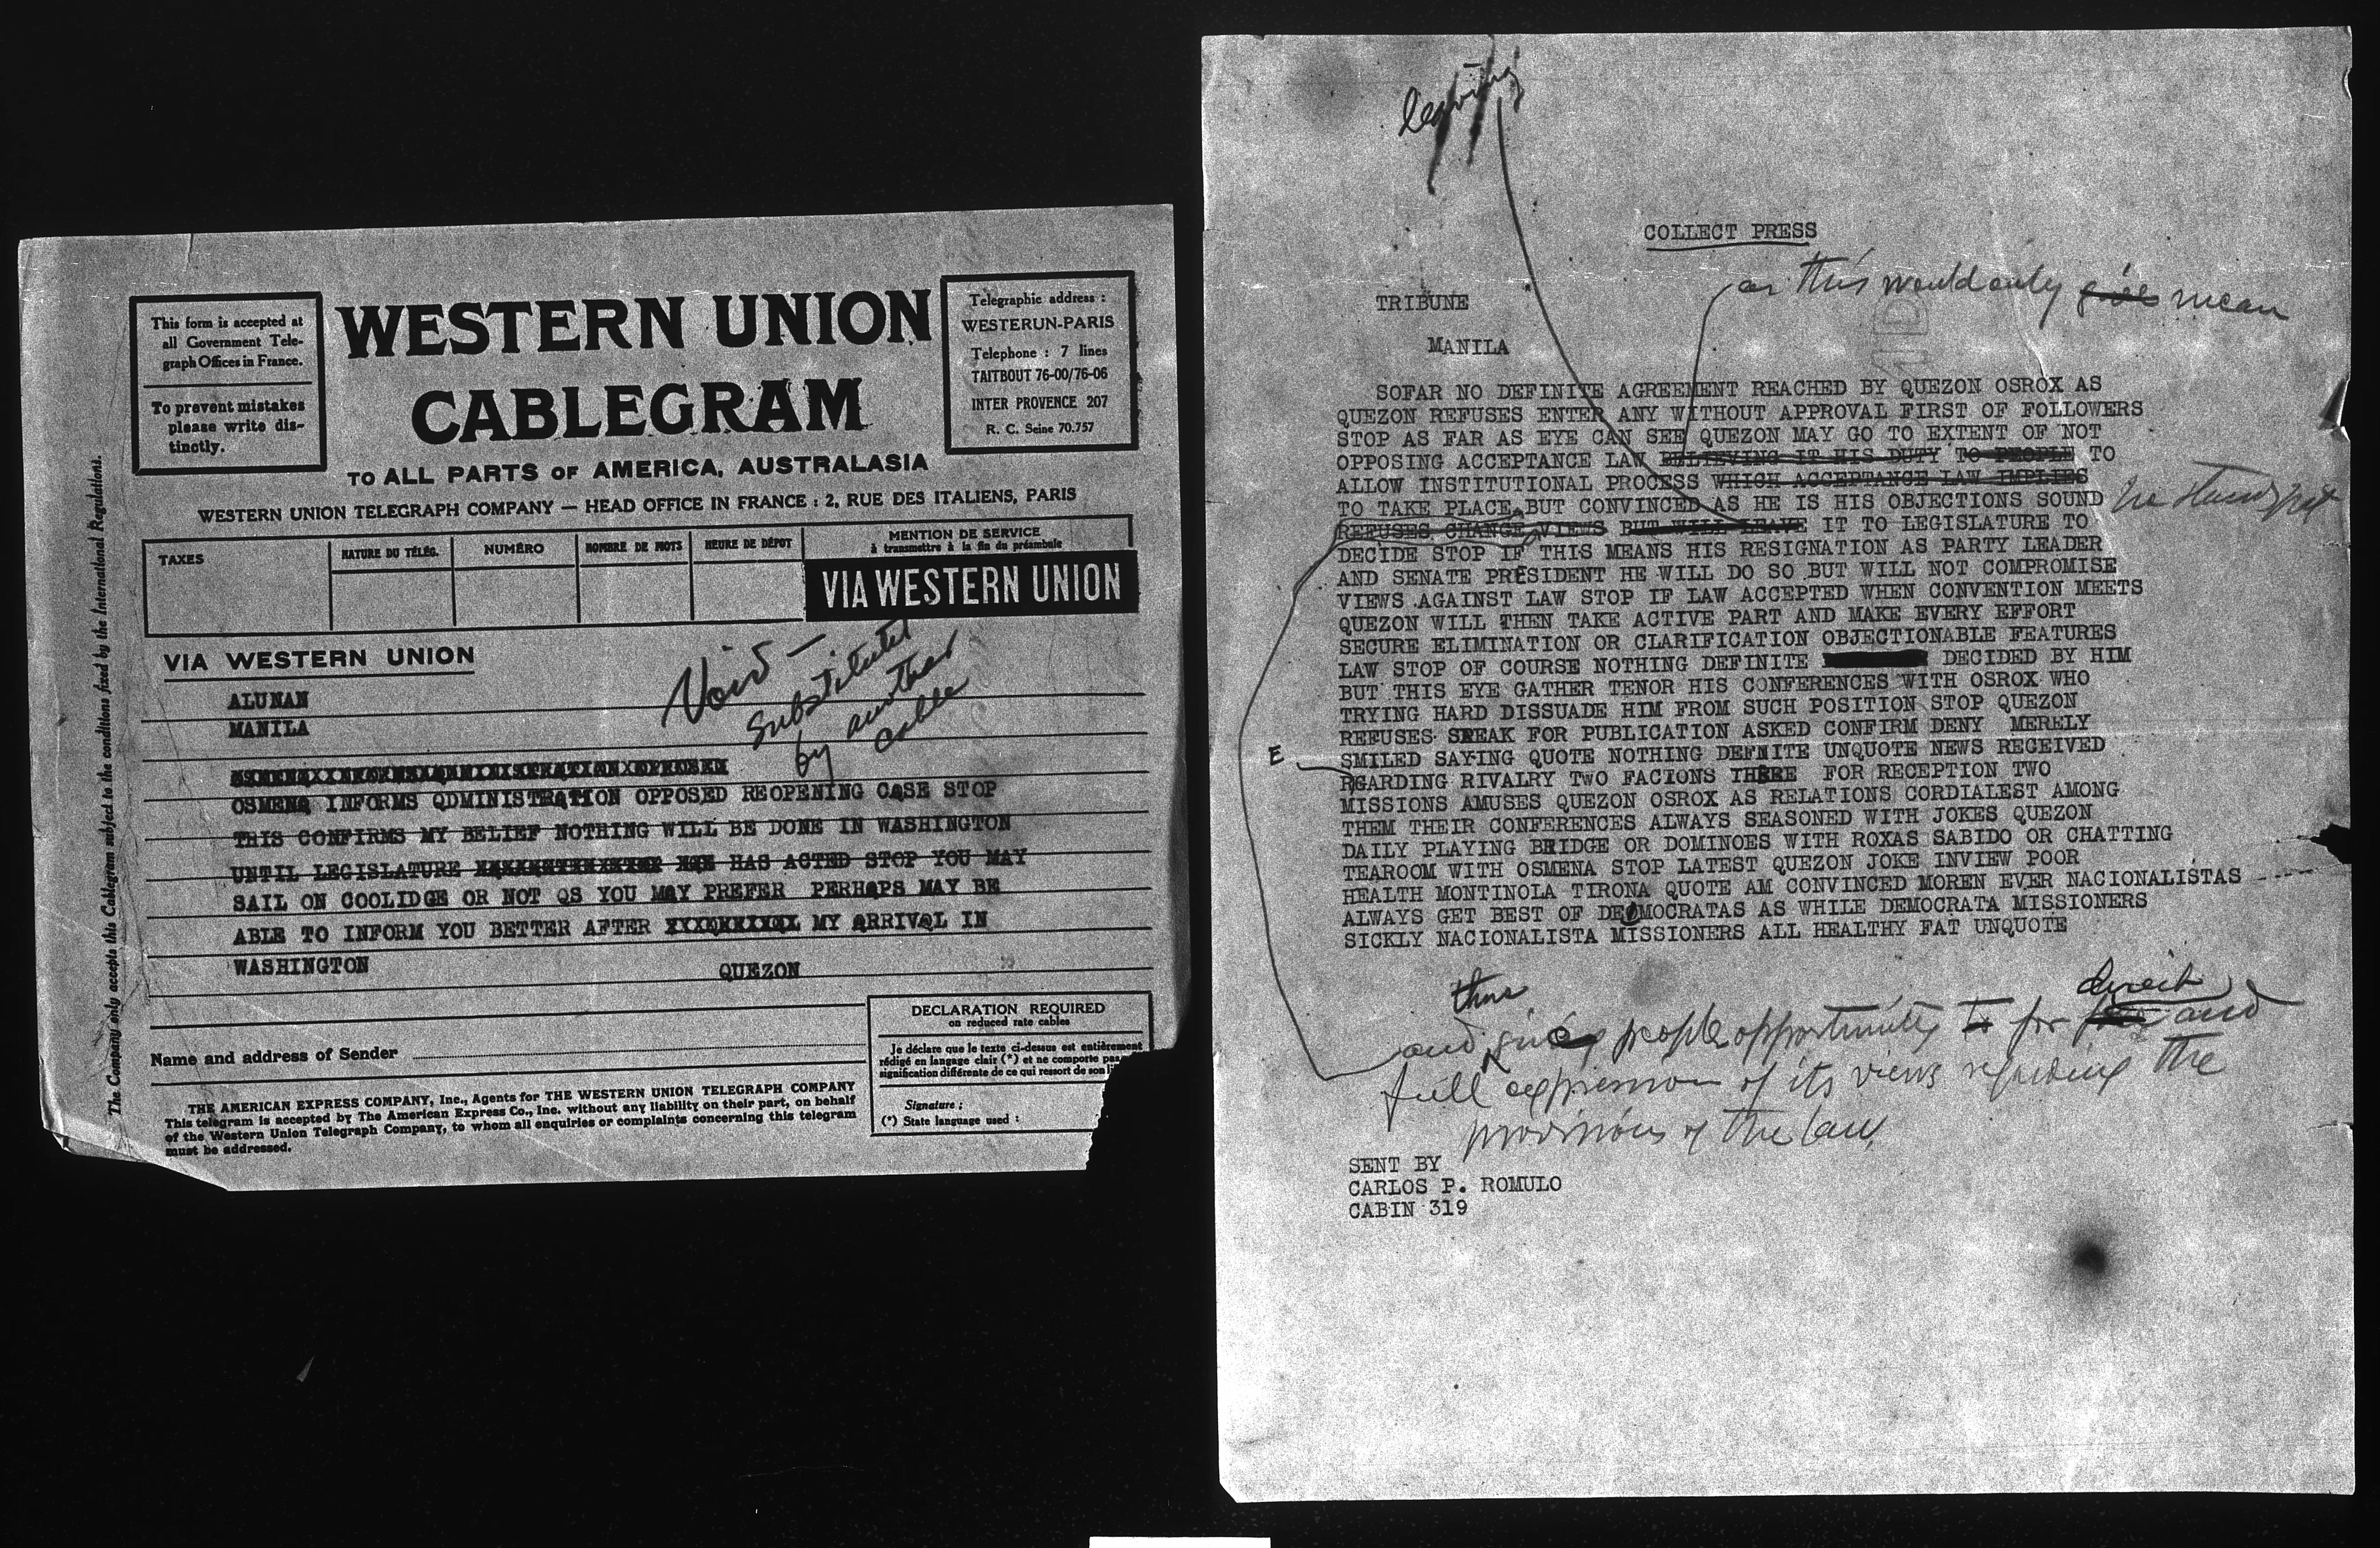 This form is accepted at
all Government Tele-
graph Offices in France.
To prevent mistakes
please write dis-
tinctly.
WESTERN UNION
CABLEGRAM
Telegraphic address :
WESTERUN-PARIS
Telephone : 7 lines
TAITBOUT 76-00/76-06
INTER PROVENCE 207
R. C. Seine 70.757
TO ALL PARTS OF AMERICA, AUSTRALASIA
WESTERN UNION TELEGRAPH COMPANY — HEAD OFFICE IN FRANCE : 2, RUE DES ITALIENS, PARIS
TAXES
NATURE DU TÉLÉG.
NUMÉRO
NOMBRE DE MOTS
HEURE DE DÉPOT
MENTION DE SERVICE
à transmettre à la fin du préambule
VIA WESTERN UNION
VIA WESTERN UNION
Void —
Substituted
by another
cable
ALUNAN
MANILA
OSMENQ INFORMS QDMINISTRQTION OPPOSED REOPENING CQSE STOP
THIS CONFIRMS MY BELIEF NOTHING WILL BE DONE IN WASHINGTON
UNTIL LEGISLATURE HAS ACTED STOP YOU MAY
SAIL ON COOLIDGE OR NOT QS YOU MQY PREFER PERHQPS MAY BE
ABLE TO INFORM YOU BETTER AFTER MY QRRIVQL IN
WASHINGTON
QUEZON
Name and address of Sender
DECLARATION REQUIRED
on reduced rate cables
Je déclare que le texte ci-dessus est entièrement
rédigé en langage clair (*) et ne comporte pas
signification différente de ce qui ressort de son
Signature :
(*) State language used :
THE AMERICAN EXPRESS COMPANY, Inc., Agents for THE WESTERN UNION TELEGRAPH COMPANY
This telegram is accepted by The American Express Co., Inc. without any liability on their part, on behalf
of the Western Union Telegraph Company, to whom all enquiries or complaints concerning this telegram
must be addressed.
The Company only accepts this Cablegram subject to the conditions fixed by the International Regulations.
leaving
COLLECT PRESS
as this would only give mean
TRIBUNE
MANILA
SOFAR NO DEFINITE AGREEMENT REACHED BY QUEZON OSROX AS
QUEZON REFUSES ENTER ANY WITHOUT APPROVAL FIRST OF FOLLOWERS
STOP AS FAR AS EYE CAN SEE QUEZON MAY GO TO EXTENT OF NOT
OPPOSING ACCEPTANCE LAW BELIEVING IT HIS DUTY TO PEOPLE TO
ALLOW INSTITUTIONAL PROCESS WHICH ACCEPTANCE LAW IMPLIES
TO TAKE PLACE BUT CONVINCED AS HE IS HIS OBJECTIONS SOUND he stands pat
REFUSES CHANGE VIEWS BUT WILL LEAVE IT TO LEGISLATURE TO
DECIDE STOP IF THIS MEANS HIS RESIGNATION AS PARTY LEADER
AND SENATE PRESIDENT HE WILL DO SO BUT WILL NOT COMPROMISE
VIEWS AGAINST LAW STOP IF LAW ACCEPTED WHEN CONVENTION MEETS
QUEZON WILL THEN TAKE ACTIVE PART AND MAKE EVERY EFFORT
SECURE ELIMINATION OR CLARIFICATION OBJECTIONABLE FEATURES
LAW STOP OF COURSE NOTHING DEFINITE DECIDED BY HIM
BUT THIS EYE GATHER TENOR HIS CONFERENCES WITH OSROX WHO
TRYING HARD DISSUADE HIM FROM SUCH POSITION STOP QUEZON
REFUSES SPEAK FOR PUBLICATION ASKED CONFIRM DENY MERELY
SMILED SAYING QUOTE NOTHING DEFNITE UNQUOTE NEWS RECEIVED
E RGARDING RIVALRY TWO FACIONS THERE FOR RECEPTION TWO
MISSIONS AMUSES QUEZON OSROX AS RELATIONS CORDIALEST AMONG
THEM THEIR CONFERENCES ALWAYS SEASONED WITH JOKES QUEZON
DAILY PLAYING BRIDGE OR DOMINOES WITH ROXAS SABIDO OR CHATTING
TEAROOM WITH OSMENA STOP LATEST QUEZON JOKE INVIEW POOR
HEALTH MONTINOLA TIRONA QUOTE AM CONVINCED MOREN EVER NACIONALISTAS
ALWAYS GET BEST OF DEMOCRATAS AS WHILE DEMOCRATA MISSIONERS
SICKLY NACIONALISTA MISSIONERS ALL HEALTHY FAT UNQUOTE
thus direct
and give people opportunity to for and
full expression of its views regarding the
provisions of the law.
SENT BY
CARLOS P. ROMULO
CABIN 319